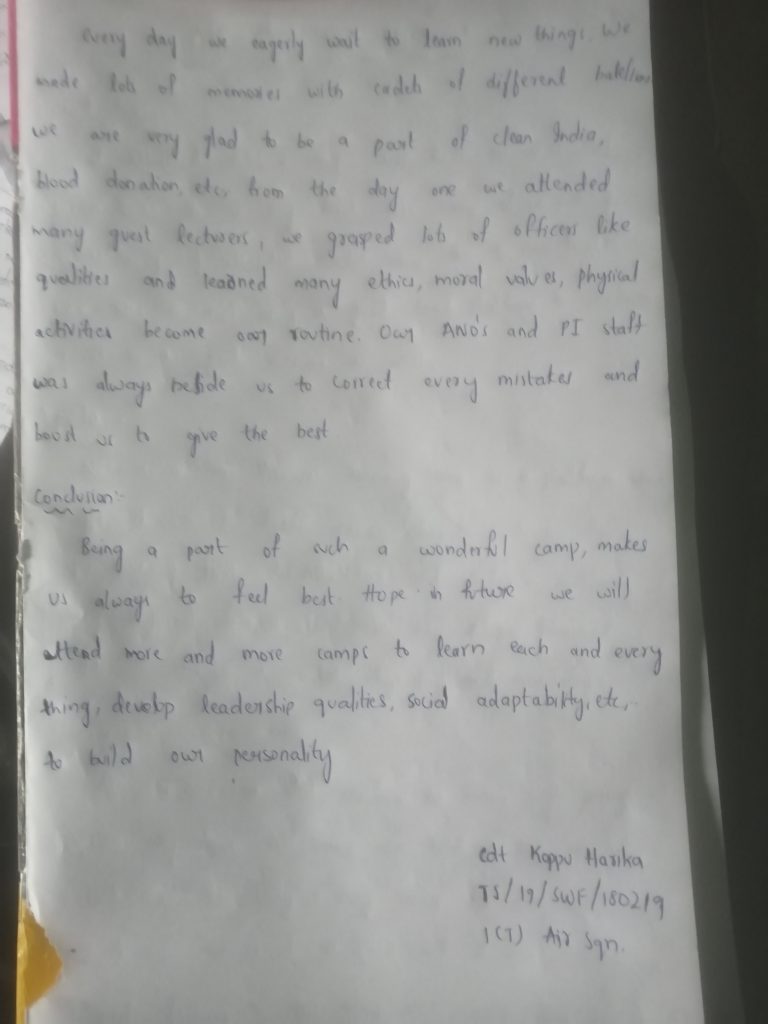 every day we eagerly wait to learn new things. We
made lots of memories with cadets of different
we are very glad to be a part of clean India,
blood donation, etc, from the day one we attended
many guest lectusers, we grasped lots of officers like
qualities and learned many ethics, moral values, physical
activities become our routine. Our ANO's and PI staff
was always beside us to correct every mistakes and
boost us to give the best
Conclusion:-
Being a part of such a wonderful camp, makes
us always to feel best Hope in future we will
attend more and more camps to learn each and every
thing, develop leadership qualities, social adaptability, etc,
to build our personality
cdt Koppu Harika
TS/19/SWF/180219
1(T) Air Sqn.